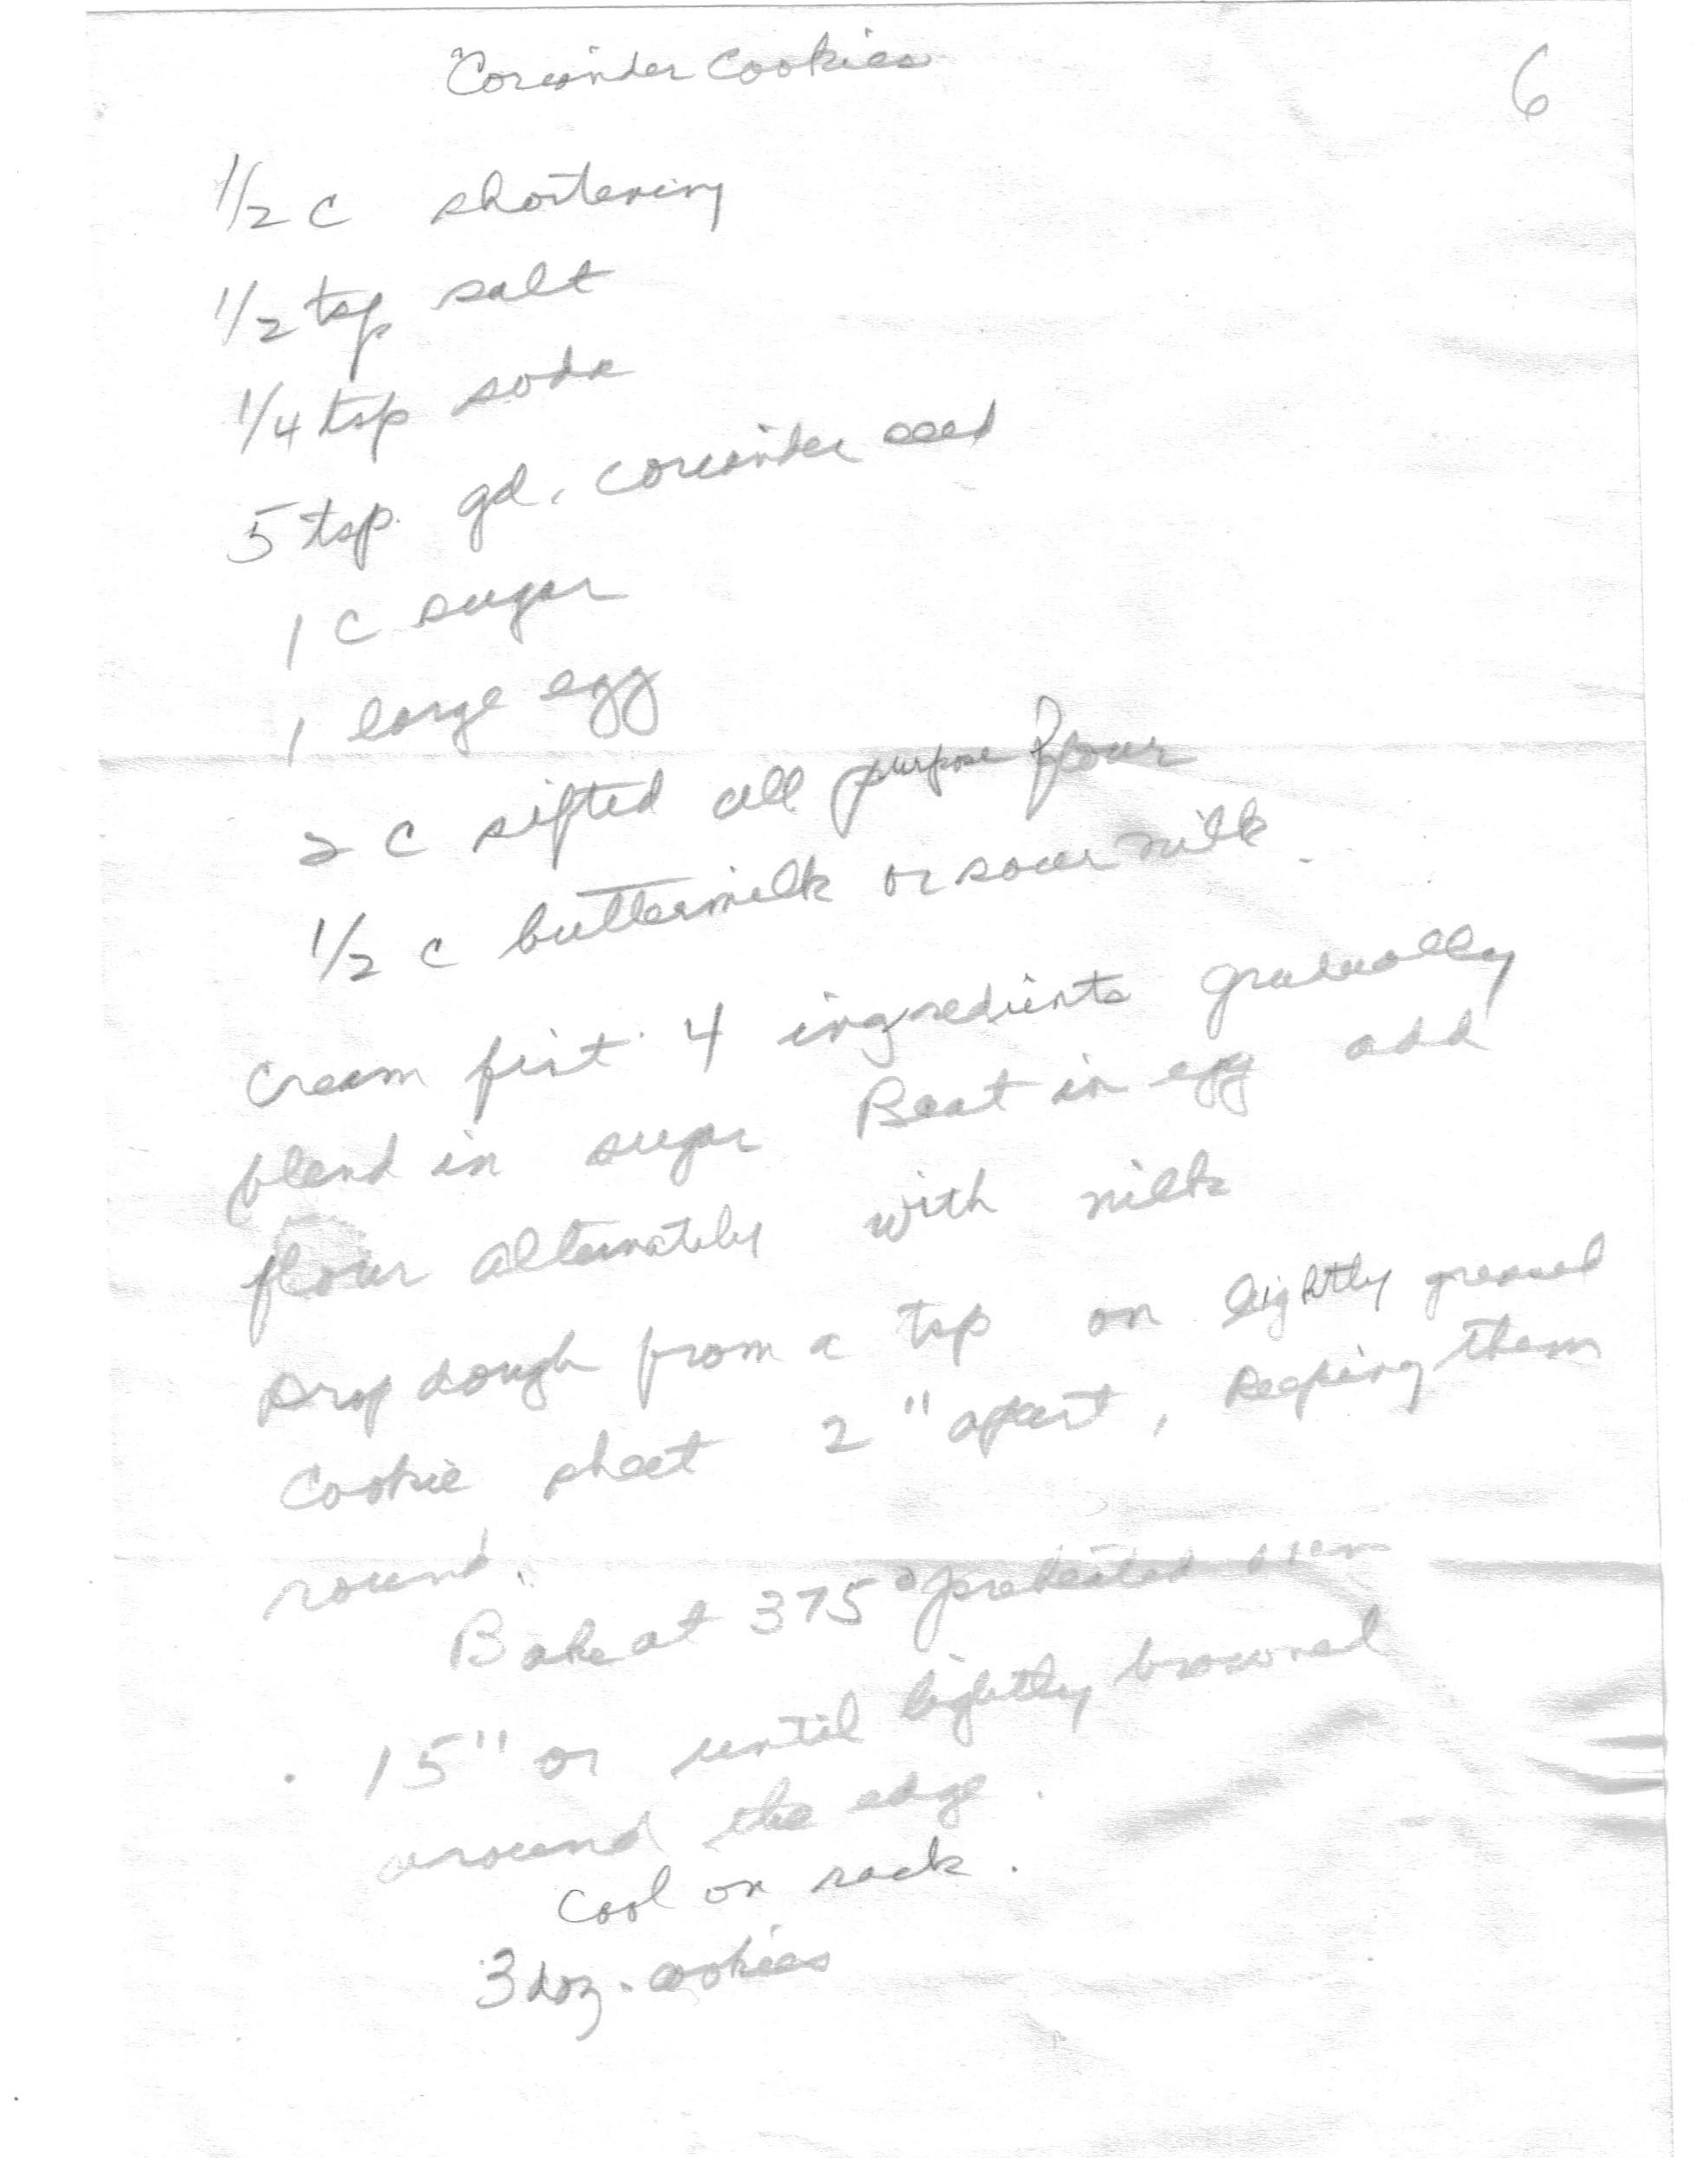 Coriander Cookies
6
1/2 c shortening
1/2 tsp salt
1/4 tsp soda
5 tsp. gd. coriander seed
1 c sugar
1 large egg
2 c sifted all purpose flour
1/2 c buttermilk or sour milk.
Cream first 4 ingredients gradually
blend in sugar Beat in egg add
flour alternately with milk
Drop dough from a tsp on lightly greased
Cookie sheet 2" apart, keeping them
round.
Bake at 375° preheated oven
15" or until lightly browned
around the edge.
Cool on rack.
3 doz. cookies